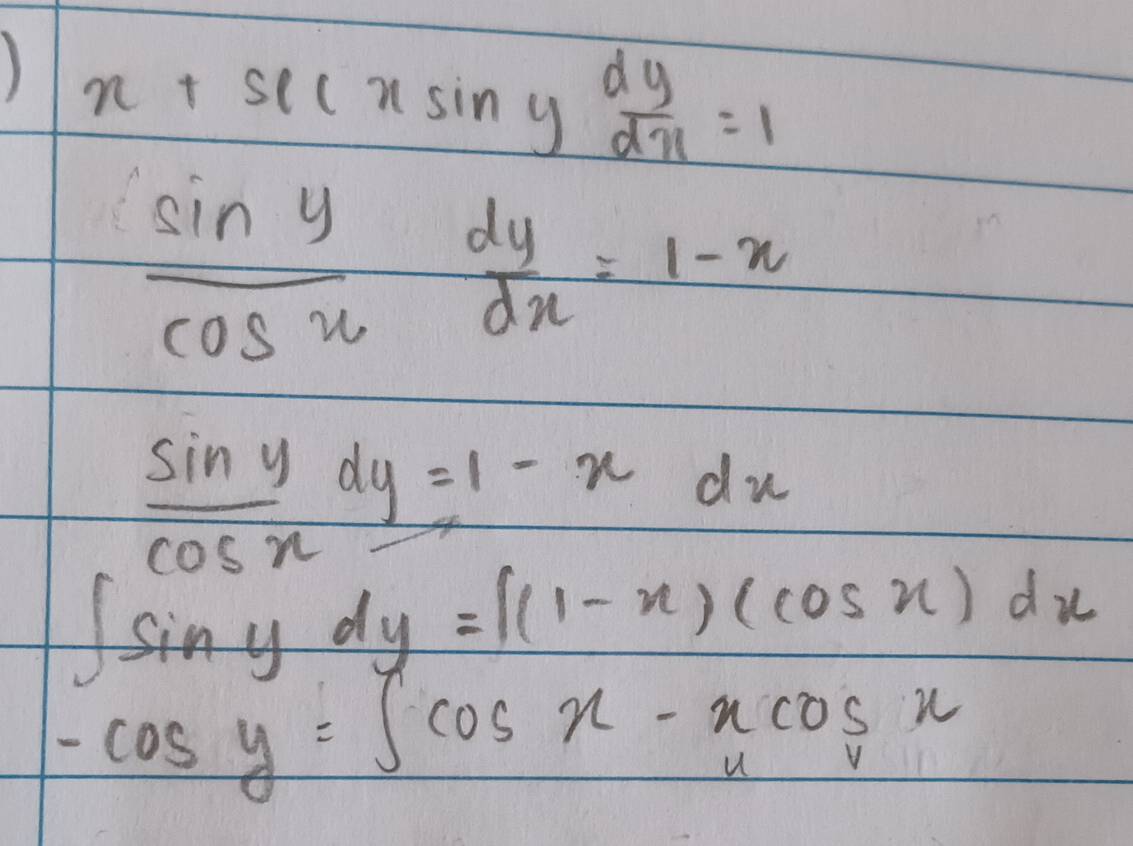 ) x + sec x sin y dy/dx = 1
sin y / cos x dy/dx = 1 - x
sin y / cos x dy = 1 - x dx
∫ sin y dy = ∫(1 - x)(cos x) dx
- cos y = ∫ cos x - x cos x
u v